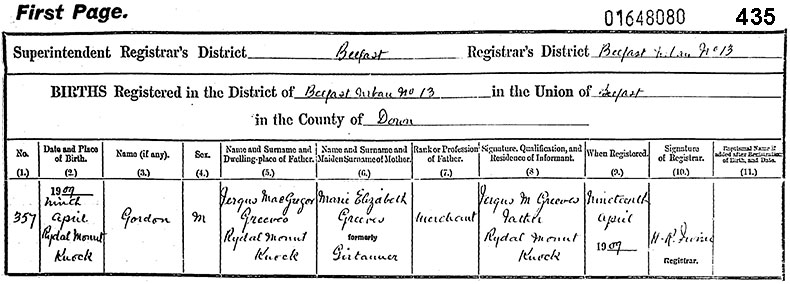 First Page.
01648080 435
Superintendent Registrar's District Belfast Registrar's District Belfast Urban No 13
BIRTHS Registered in the District of Belfast Urban No 13 in the Union of Belfast
in the County of Down
No. Date and Place of Birth. Name (if any). Sex. Name and Surname and Dwelling-place of Father. Name and Surname and Maiden Surname of Mother. Rank or Profession of Father. Signature, Qualification, and Residence of Informant. When Registered. Signature of Registrar. Baptismal Name if added after Registration of Birth, and Date.
(1.) (2.) (3.) (4.) (5.) (6.) (7.) (8) (9.) (10.) (11.)
357
1909
Ninth
April
Rydal Mount
Knock
Gordon
M
Fergus MacGregor
Greeves
Rydal Mount
Knock
Marie Elizabeth
Greeves
formerly
Girtanner
Merchant
Fergus M Greeves
Father
Rydal Mount
Knock
Nineteenth
April
1909
H. R. Irvine
Registrar.